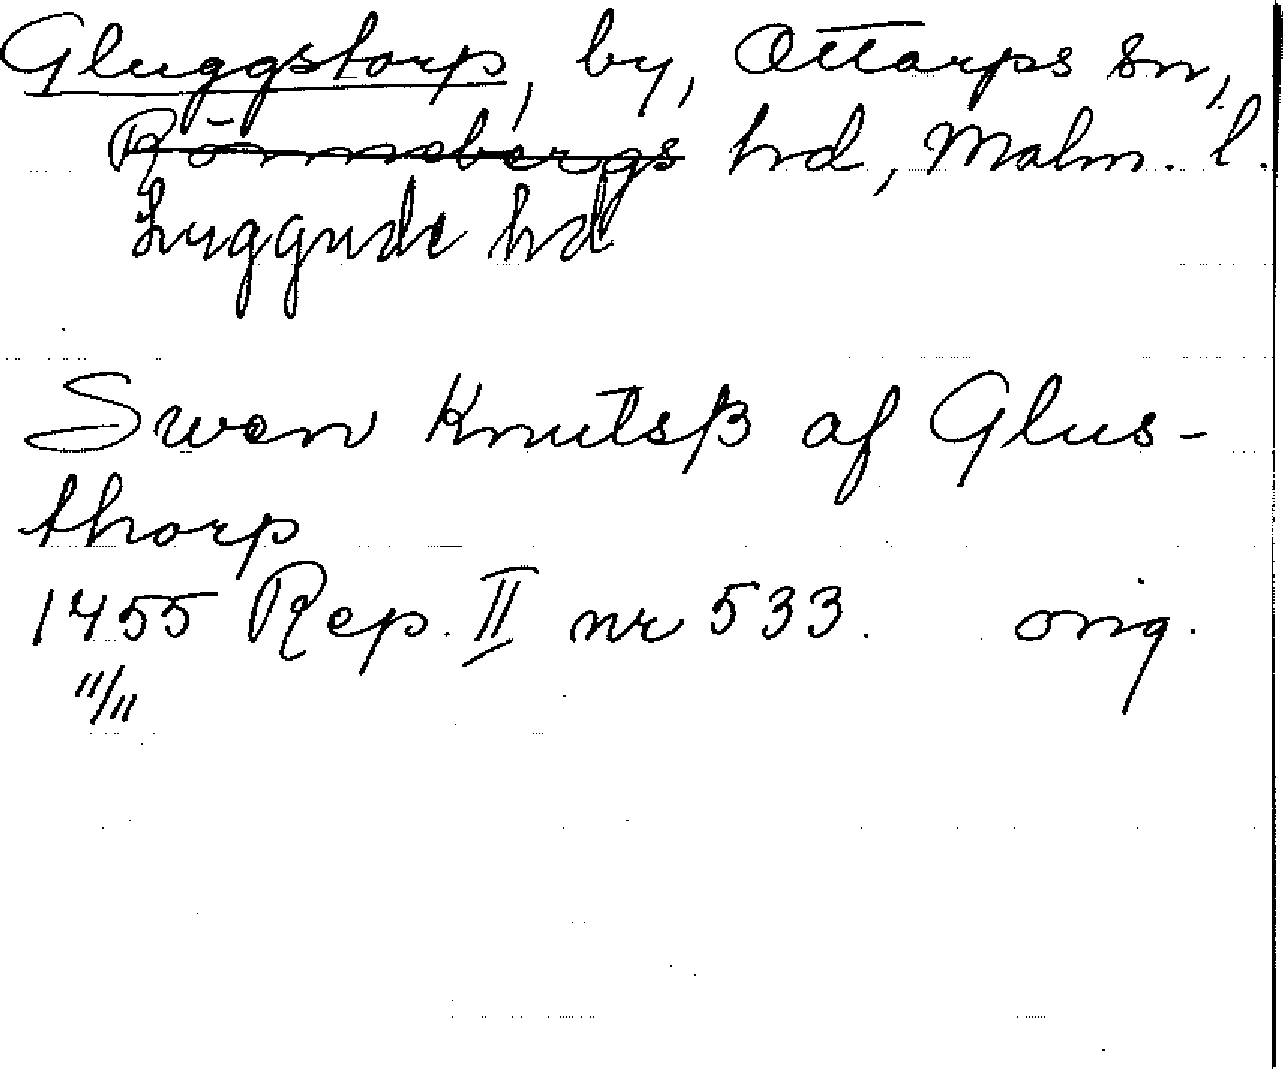 Gluggstorp, by, Ottarps sn,
Rönnebergs hrd, Malm. l.
Luggude hd
Swen Knutsβ af Glus-
thorp
1455 Rep. II nr 533. orig.
11/11